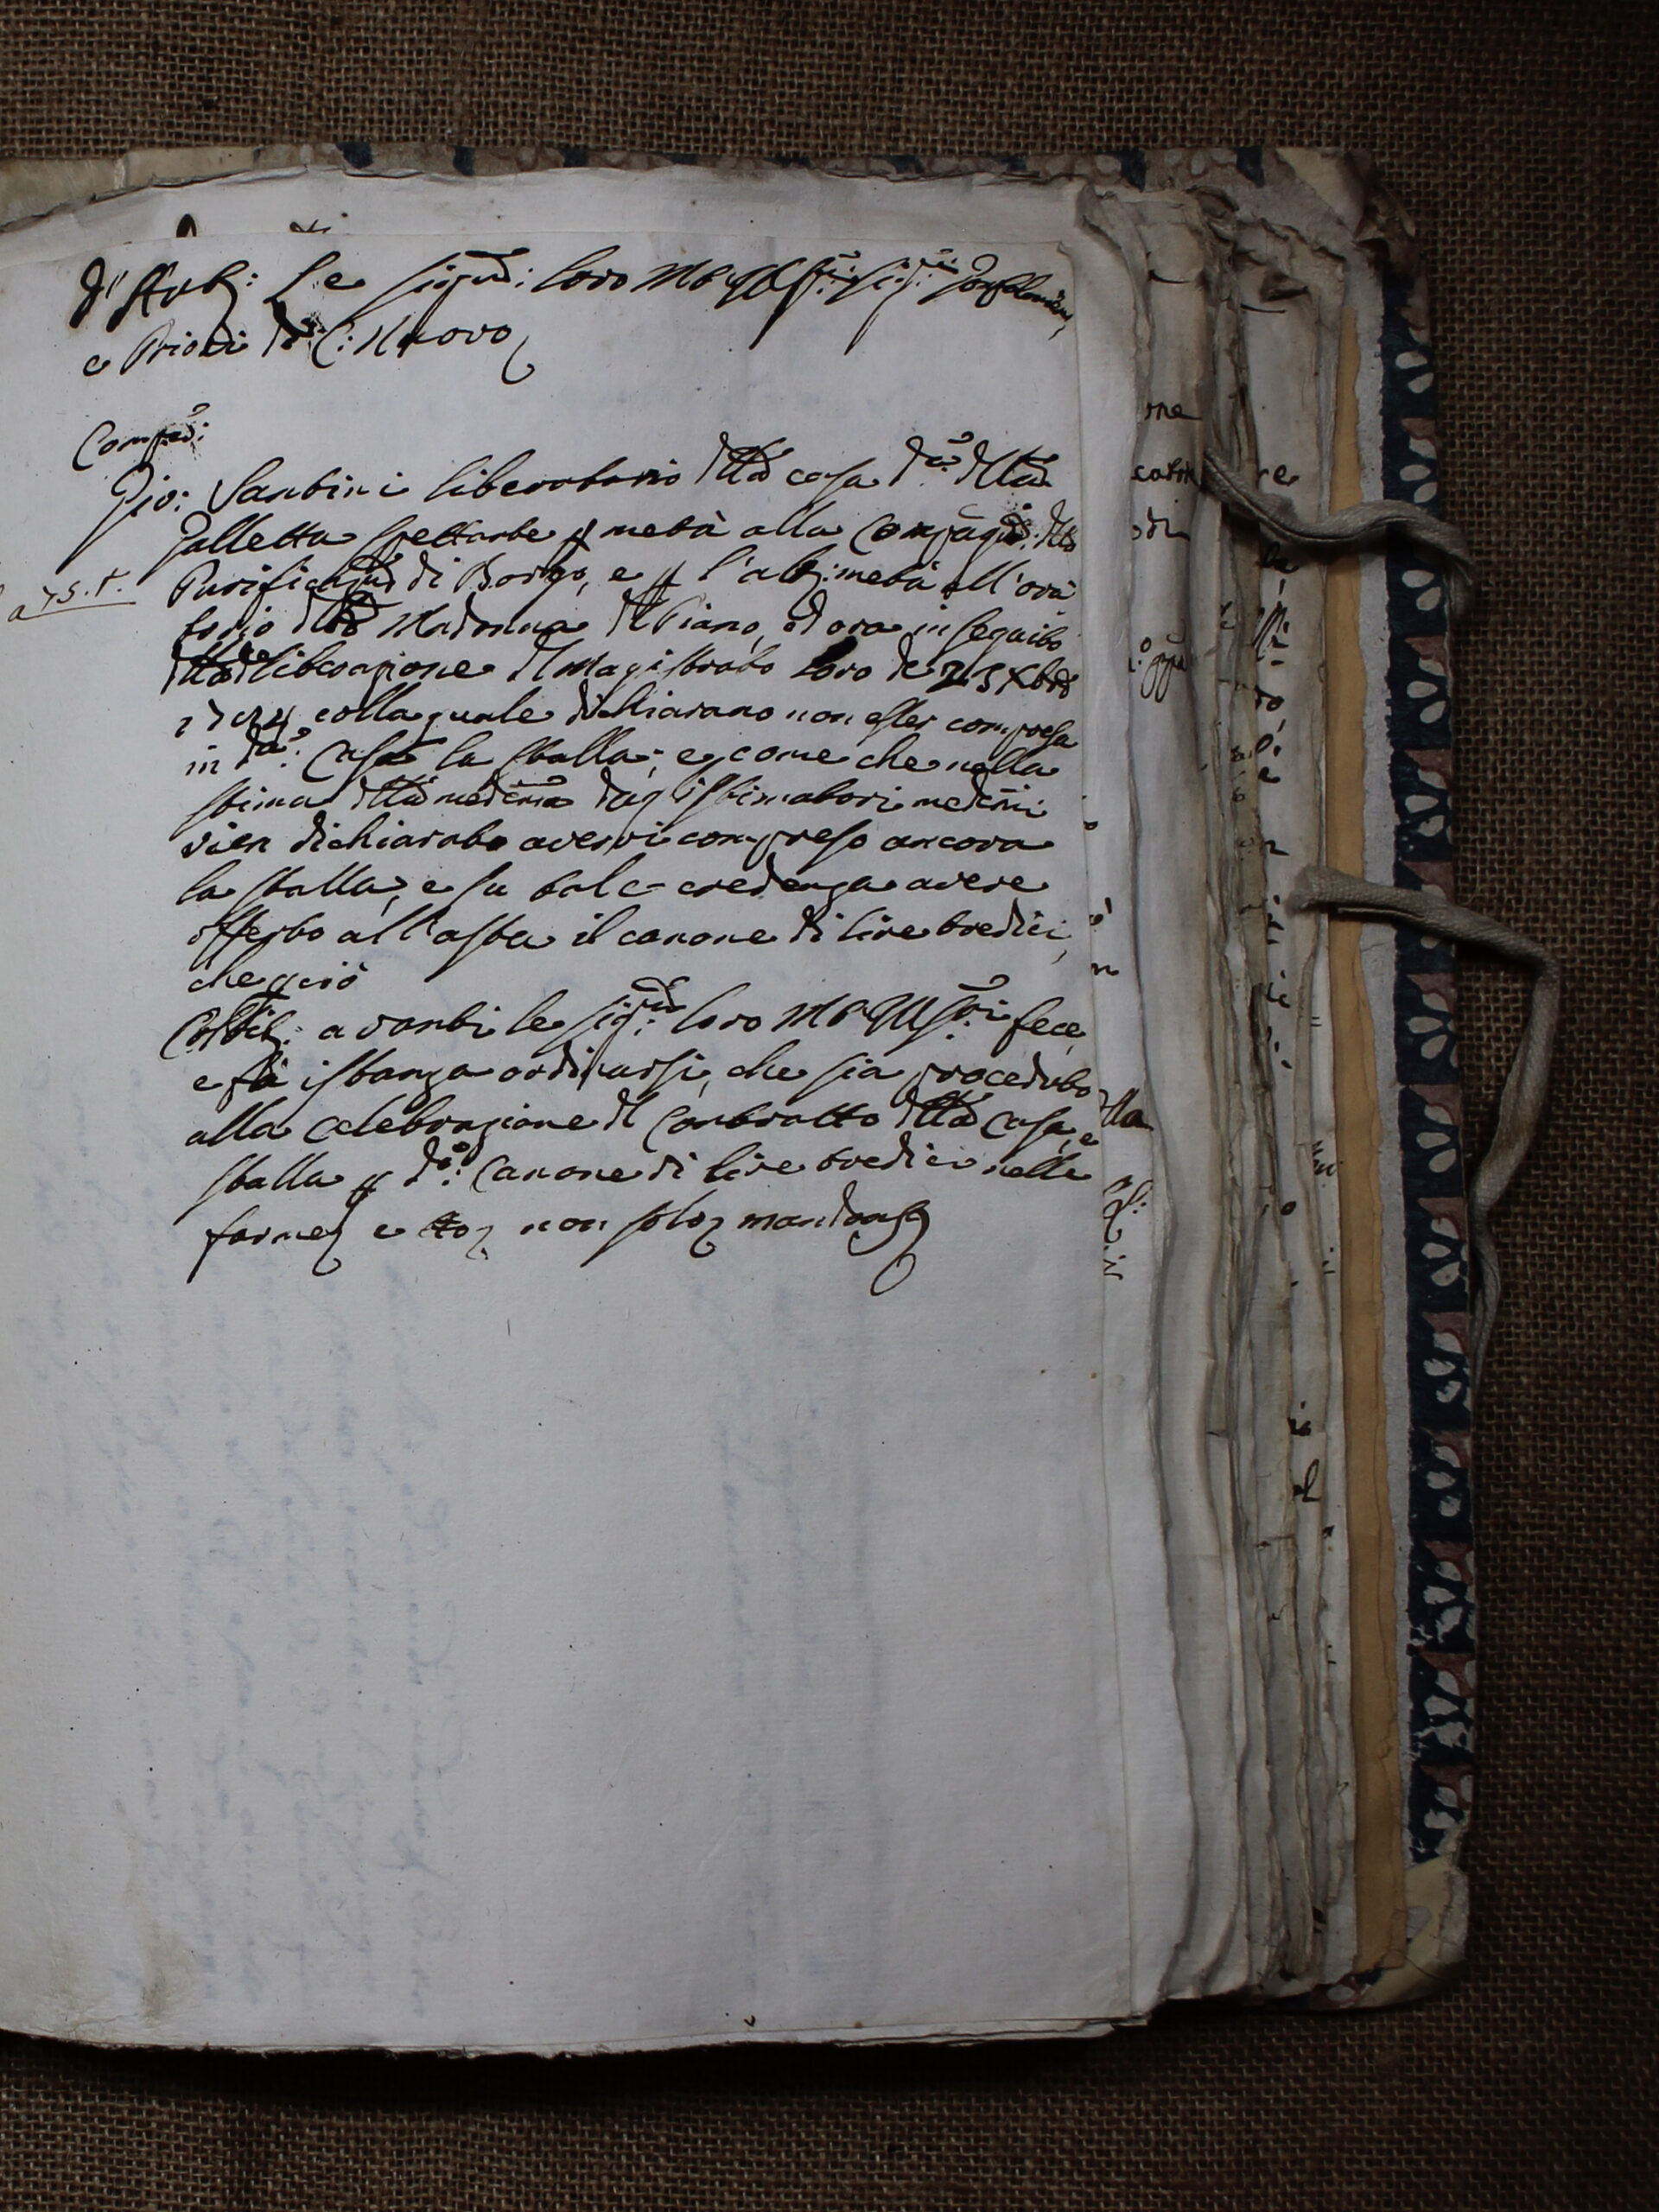 Le Sig.rie: loro M.to Ill.ri Sig.ri Gonfaloniere,
e Priori di C: Nuovo
Comp.e:
Gio: Santini liberatario della casa d.a della
Galletta spettante p metà alla Compagnia della
Purificaz.ne di Borgo, e p l'alt: metà all'ora
a 75. t.
torio della Madonna del Piano, ed ora in seguito
della deliberazione del Magistrato loro de 23 Xbre
colla quale dichiarano non esser compresa
in d.a: Casa la stalla; e come che nella
stima della medema dagli stimatori medmi
vien dichiarato avervi compreso ancora
la stalla, e su tale credenza avere
offerto all'asta il canone di lire tredici,
che p ciò
Costit: avanti le Sig.rie: loro M.to Ill.ri fece,
e fà istanza ordinarsi, che sia proceduto
alla celebrazione del Contratto della Casa, e
stalla p d.o: Canone di lire tredici nelle
forme e non solo